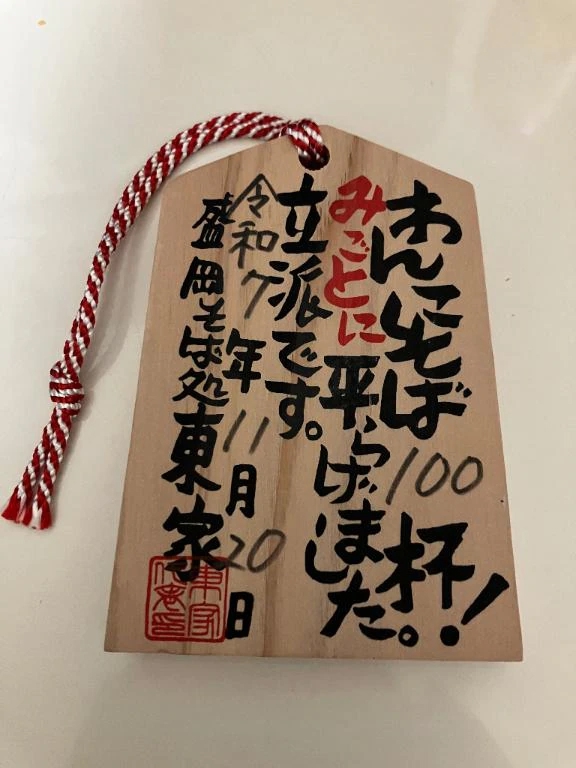 わんこそば100杯!
みごとに平らげました。
立派です。
令和7年11月20日
盛岡そば処東家